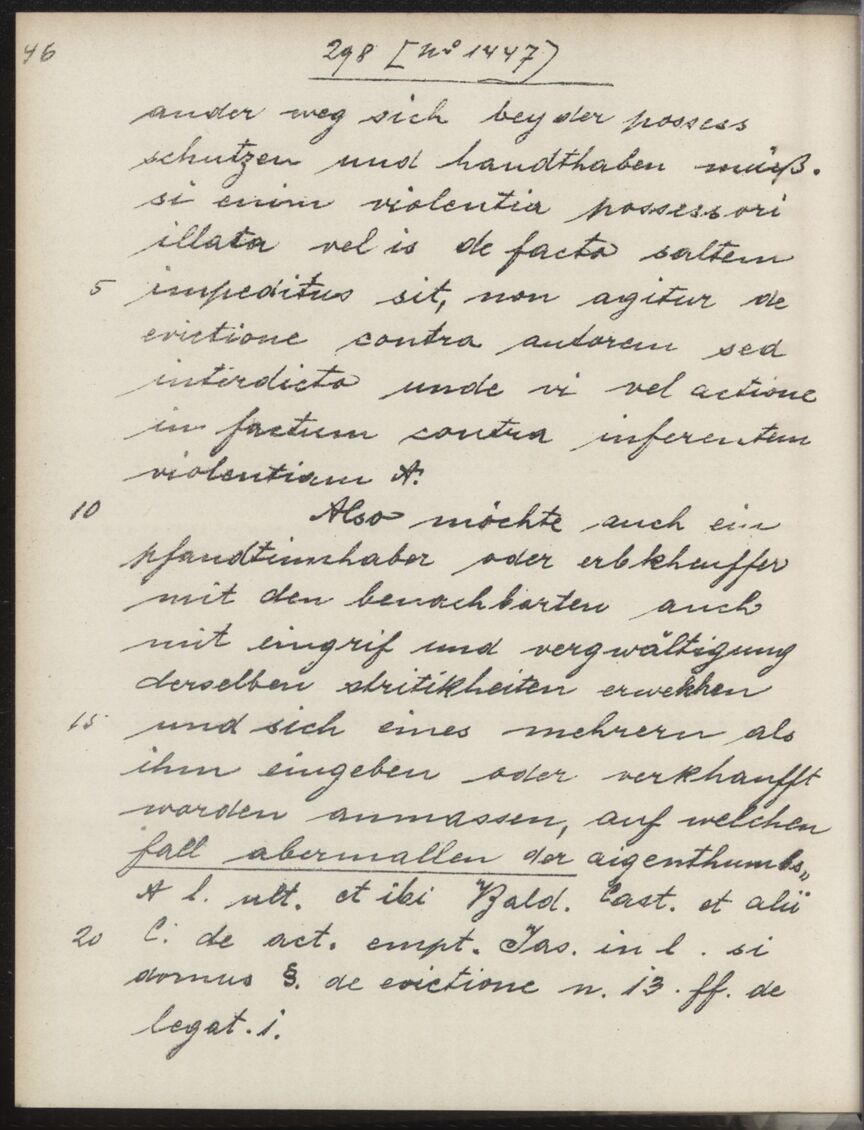 46
298 [No 1447)
ander weg sich bey der possess
schutzen und handthaben müeß.
si enim violentia possessori
illata vel is de facto saltem
5 impeditus sit, non agitur de
evictione contra autorem sed
interdicto unde vi vel actione
in factum contra inferentem
violentiam A.
10 Also möchte auch ein
pfandtinnhaber oder erbkheuffer
mit den benachbarten auch
mit eingrif und vergwältigung
derselben stritikheiten erwekhen
15 und sich eines mehrern als
ihm eingeben oder verkhaufft
worden anmassen, auf welchen
fall abermallen der aigenthumbs„
A l. ult. et ibi Bald. Cast. et alii
20 C. de act. empt. Jas. in l. si
domus §. de evictione n. 13. ff. de
legat. i.